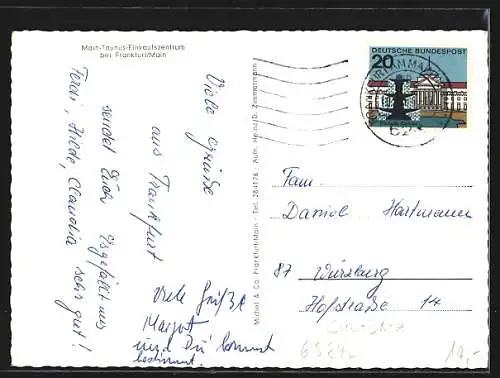 Main-Taunus-Einkaufszentrum
bei Frankfurt/Main
Viele Grüsse
aus Frankfurt
sendet Euch
Ferdi, Friede, Claudia
Es gefällt uns
sehr gut!
Viele Grüße
Margot
und Du kommst
bestimmt.
Michel & Co. Frankfurt/Main - Tel. 284126 - Aufn. Heinz/D. Zimmermann
DEUTSCHE BUNDESPOST
20
Fam.
Daniel Hartmann
87 Würzburg
Hofstraße 14
10,-